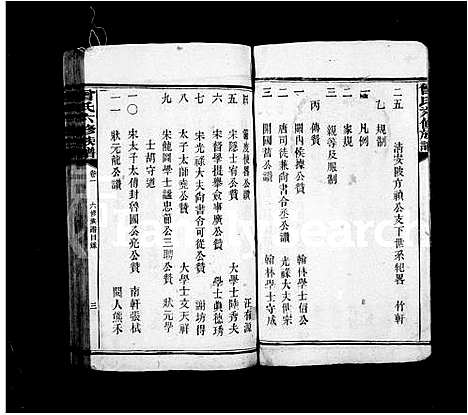 曾氏六修族譜
二五 清安陂方禎公支下世系紀畧 竹軒
乙 規制
一 凡例
二 家規
三 親等及服制
丙 傳贊
一 關內侯據公贊 翰林學士伯公
二 唐司徒兼尚書令丞公讚 光祿大夫世宗
三 開國舊公讚 翰林學士守咸
四 節度使畧公讚 汪有源
五 宋隱士宿公贊 大學士陸秀夫
六 宋督學提舉僉事廣公贊 學士眞德琇
七 宋光祿大夫尚書令可從公贊 謝坊得
八 太子太師堯公贊 大學士文天祥
九 宋龍圖學士諡忠節公三聘公贊 狀元學
士胡守道
一〇 宋太子太傅封魯國公亮公贊 南軒張栻
一一 狀元龍公讚 閩人熊禾
曾氏六修族譜
卷一 六修族譜目錄
三